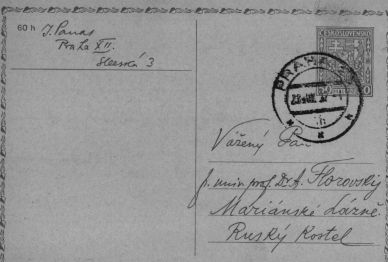 60 h
J. Panas
Praha XII.
3
ČESKOSLOVENSKO
PRAHA
Vážený Pan
p. univ. prof. Dr. A. Florovský
Mariánské Lázně
Ruský Kostel